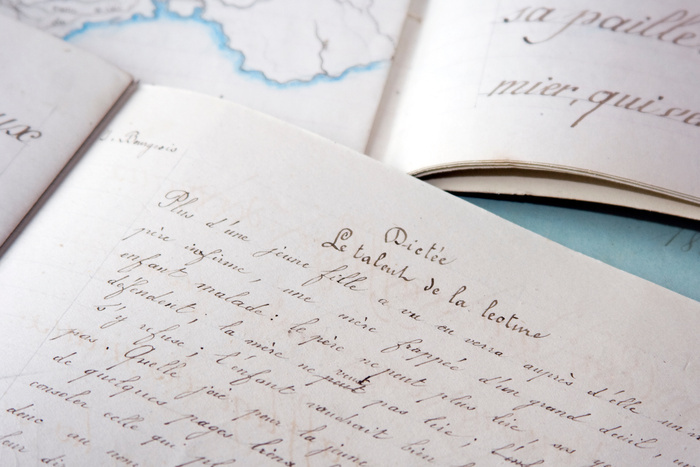 ux
sa paille
mier, qui
Bourgeois
Dictée
Le talent de la lecture
Plus d'une jeune fille a vu ou verra auprès d'elle un
père infirme, une mère frappée d'un grand deuil, u
enfant malade: le père ne peut plus lire, ses y
défendent; la mère ne veut pas lire;
s'y refuse; l'enfant voudrait bien
pas. Quelle joie pour la jeune
de quelques pages
consoler celle qui pl
donc au nom
leur di